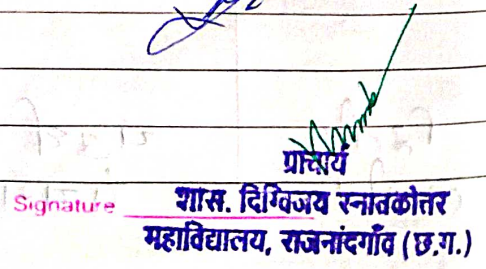 प्राचार्य
Signature शास. दिग्विजय स्नातकोत्तर
महाविद्यालय, राजनांदगाँव (छ.ग.)